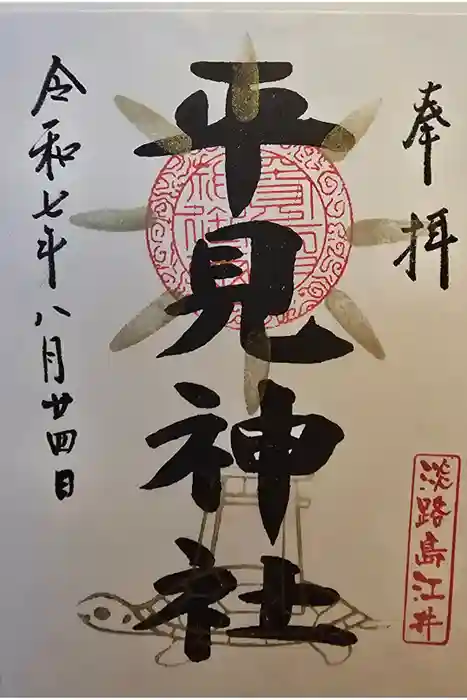 奉拝
平見神社
令和七年八月廿四日
淡路島江井